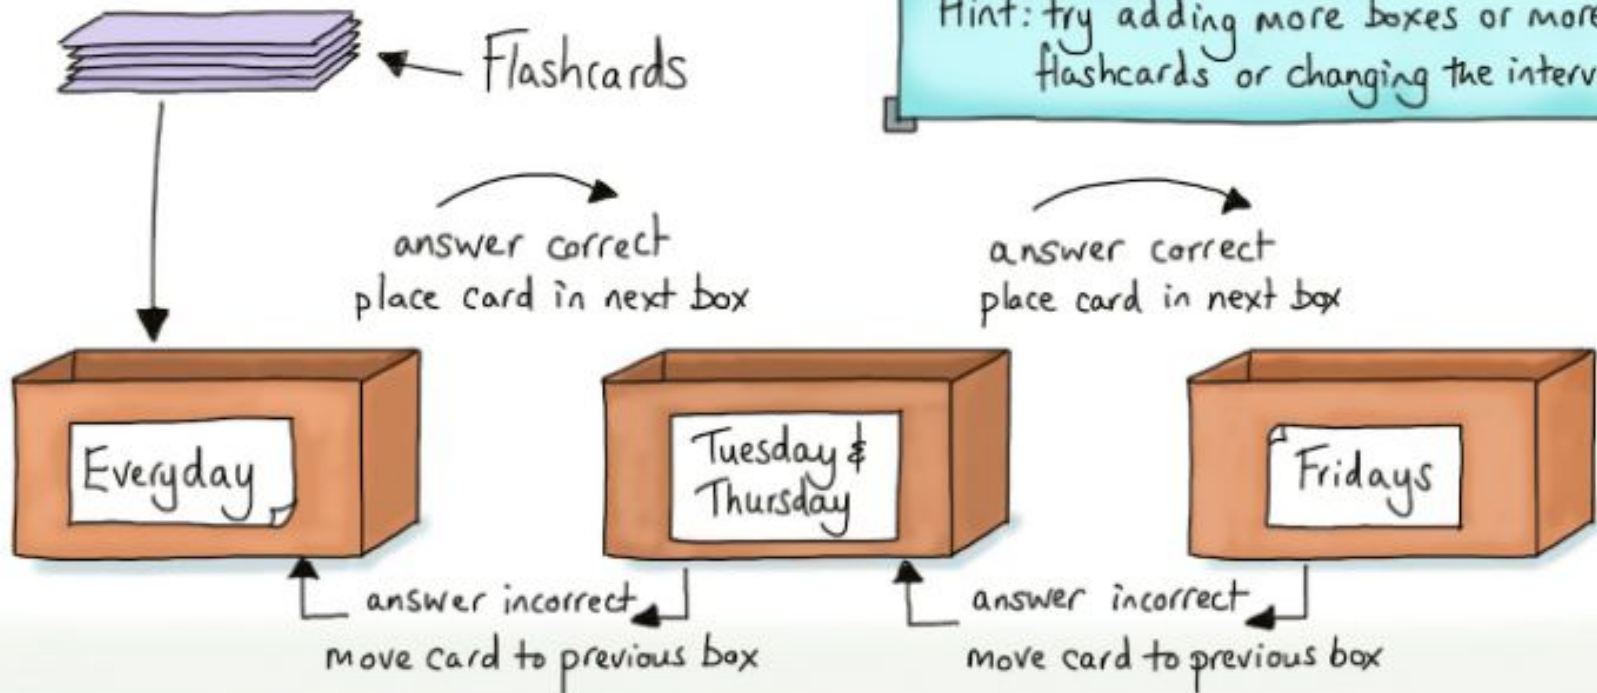 Hint: try adding more boxes or more
flashcards or changing the interv
Flashcards
answer correct
place card in next box
answer correct
place card in next box
Everyday
Tuesday &
Thursday
Fridays
answer incorrect
move card to previous box
answer incorrect
move card to previous box